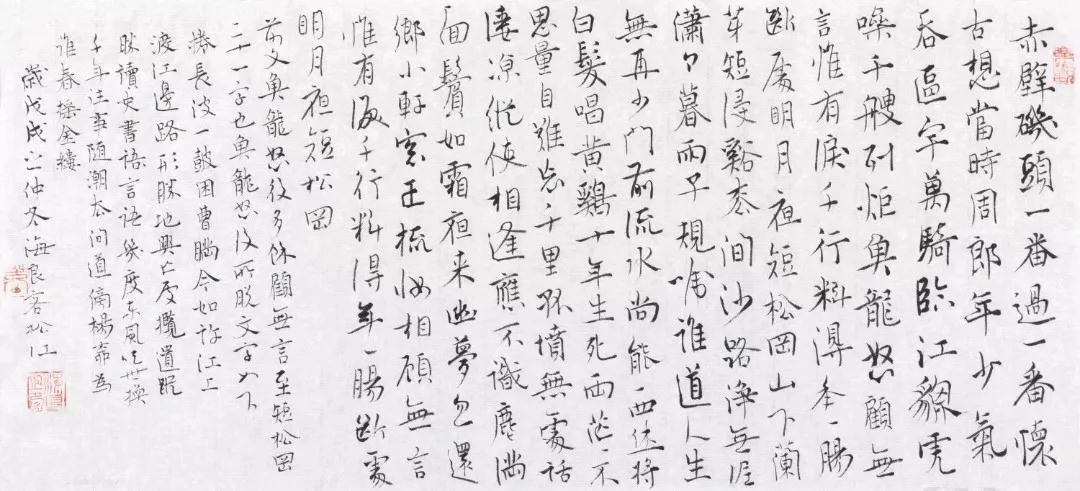 赤壁磯頭一番過一番懷
古想當時周郎年少氣
吞區宇萬騎臨江貔虎
噪千艘列炬魚龍怒顧無
言惟有淚千行料得年一腸
斷處明月夜短松岡山下蘭
芽短浸谿松間沙路淨無泥
瀟々暮雨子規啼誰道人生
無再少門前流水尚能西休將
白髮唱黄鷄十年生死兩茫不
思量自難忘千里孤墳無處話
淒涼縱使相逢應不識塵滿
面鬢如霜夜来幽夢忽還
鄉小軒窗正梳妝相顧無言
惟有淚千行料得年一腸斷處
明月夜短松岡
前文魚龍怒後多休顧無言至短松岡
二十一字也魚龍怒後所脫文字如下
捲長波一鼓困曹瞞今如許江上
渡江邊路形勝地興亡處攬遺蹤
勝讀史書語言語幾度東風吹世換
千年往事随潮去問道傍楊柳為
誰春搖金縷
歲戊戌之仲冬海良客松江